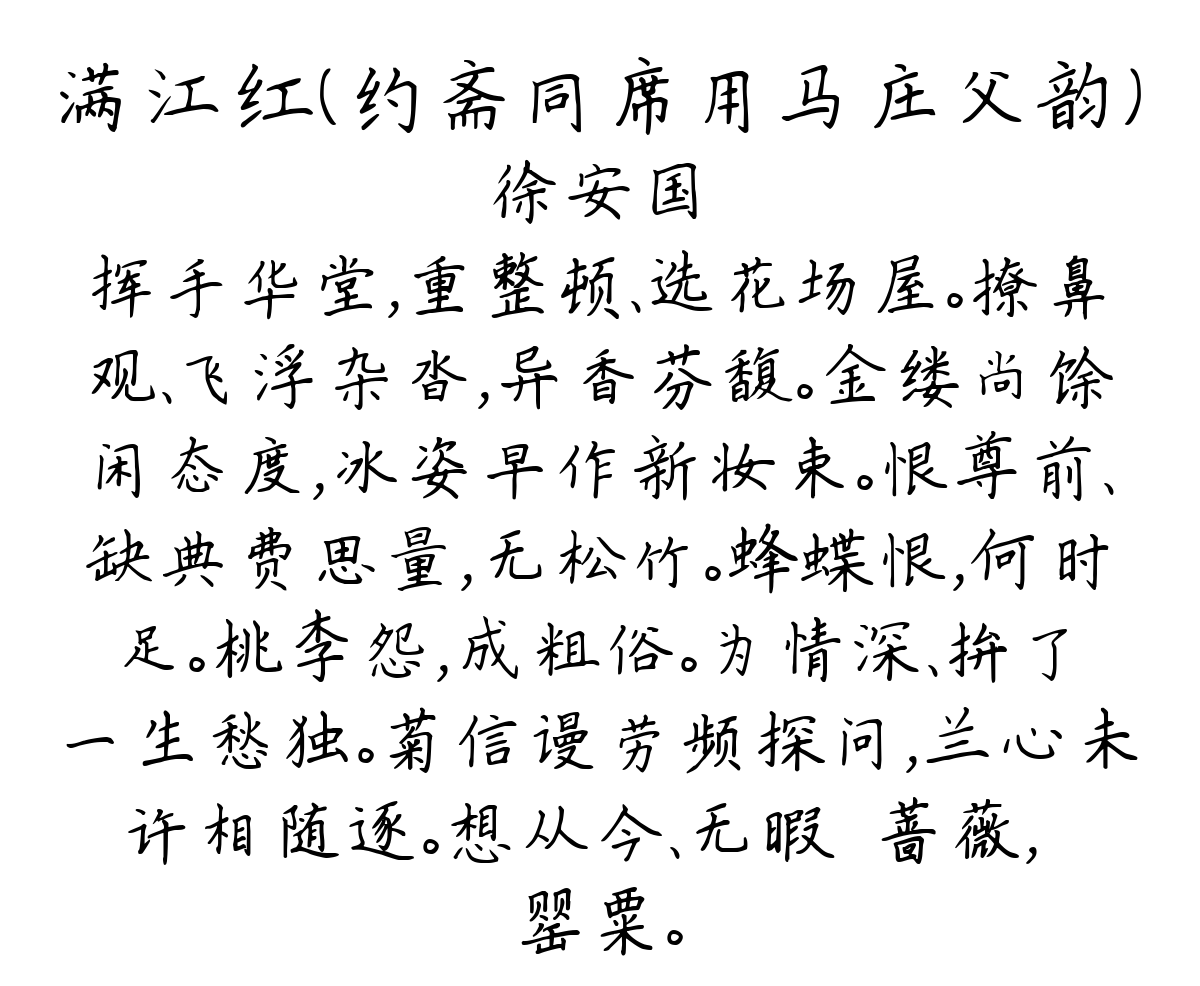 满江红(约斋同席用马庄父韵)
徐安国
挥手华堂,重整顿、选花场屋。撩鼻
观、飞浮杂沓,异香芬馥。金缕尚馀
闲态度,冰姿早作新妆束。恨尊前、
缺典费思量,无松竹。蜂蝶恨,何时
足。桃李怨,成粗俗。为情深、拚了
一生愁独。菊信谩劳频探问,兰心未
许相随逐。想从今、无暇 蔷薇,
罂粟。